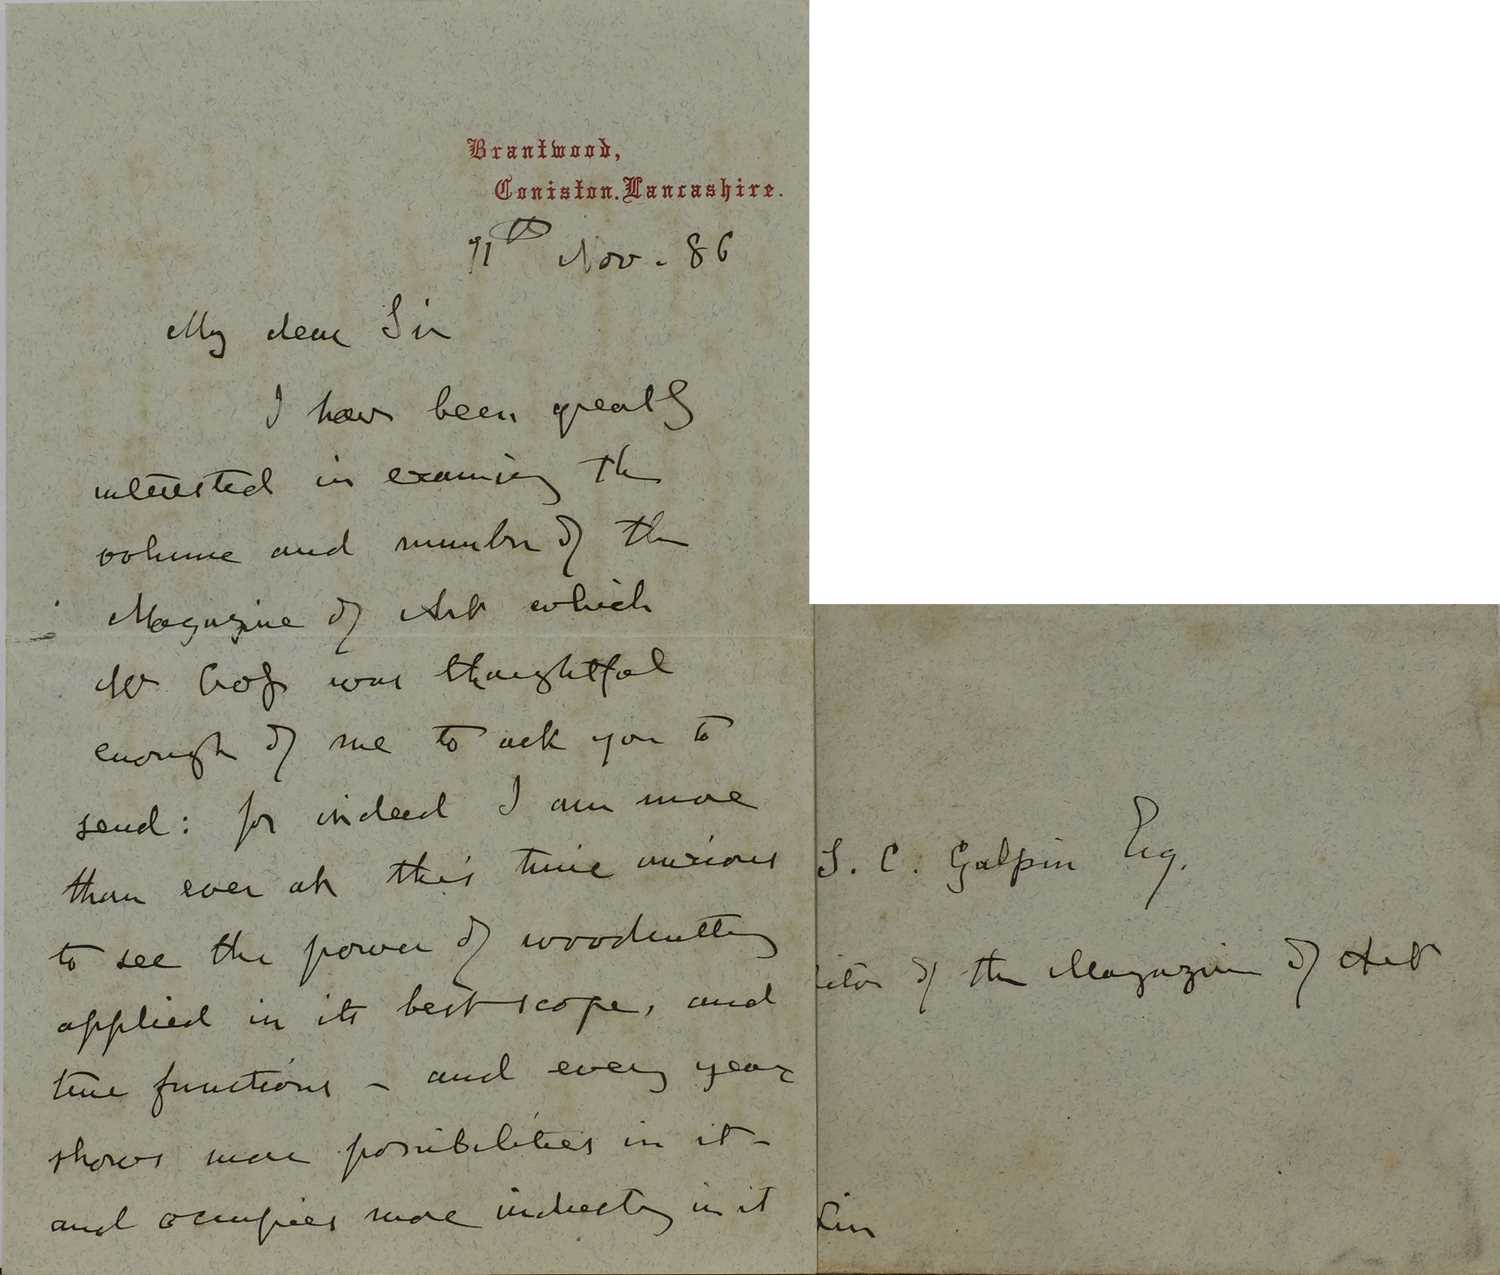 Brantwood,
Coniston. Lancashire.
11th Nov. 86
My dear Sir
I have been greatly
interested in examing the
volume and number of the
Magazine of Art which
Mr was thoughtful
enough of me to ask you to
send: for indeed I am more
than ever at this time anxious
to see the power of woodcutting
applied in its best scope, and
true functions - and every year
shows more possibilities in it -
and occupies more industry in it
S. C. Galpin Esq.
of the Magazine of Art